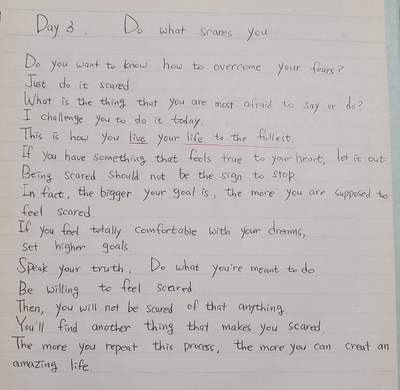 Day 3. Do what scares you
Do you want to know how to overcome your fears?
Just do it scared.
What is the thing that you are most afraid to say or do?
I challenge you to do it today.
This is how you live your life to the fullest.
If you have something that feels true to your heart, let it out.
Being scared should not be the sign to stop
In fact, the bigger your goal is, the more you are supposed to
feel scared.
If you feel totally comfortable with your dreams,
set higher goals.
Speak your truth. Do what you're meant to do
Be willing to feel scared.
Then, you will not be scared of that anything.
You'll find another thing that makes you scared.
The more you repeat this process, the more you can creat an
amazing life.